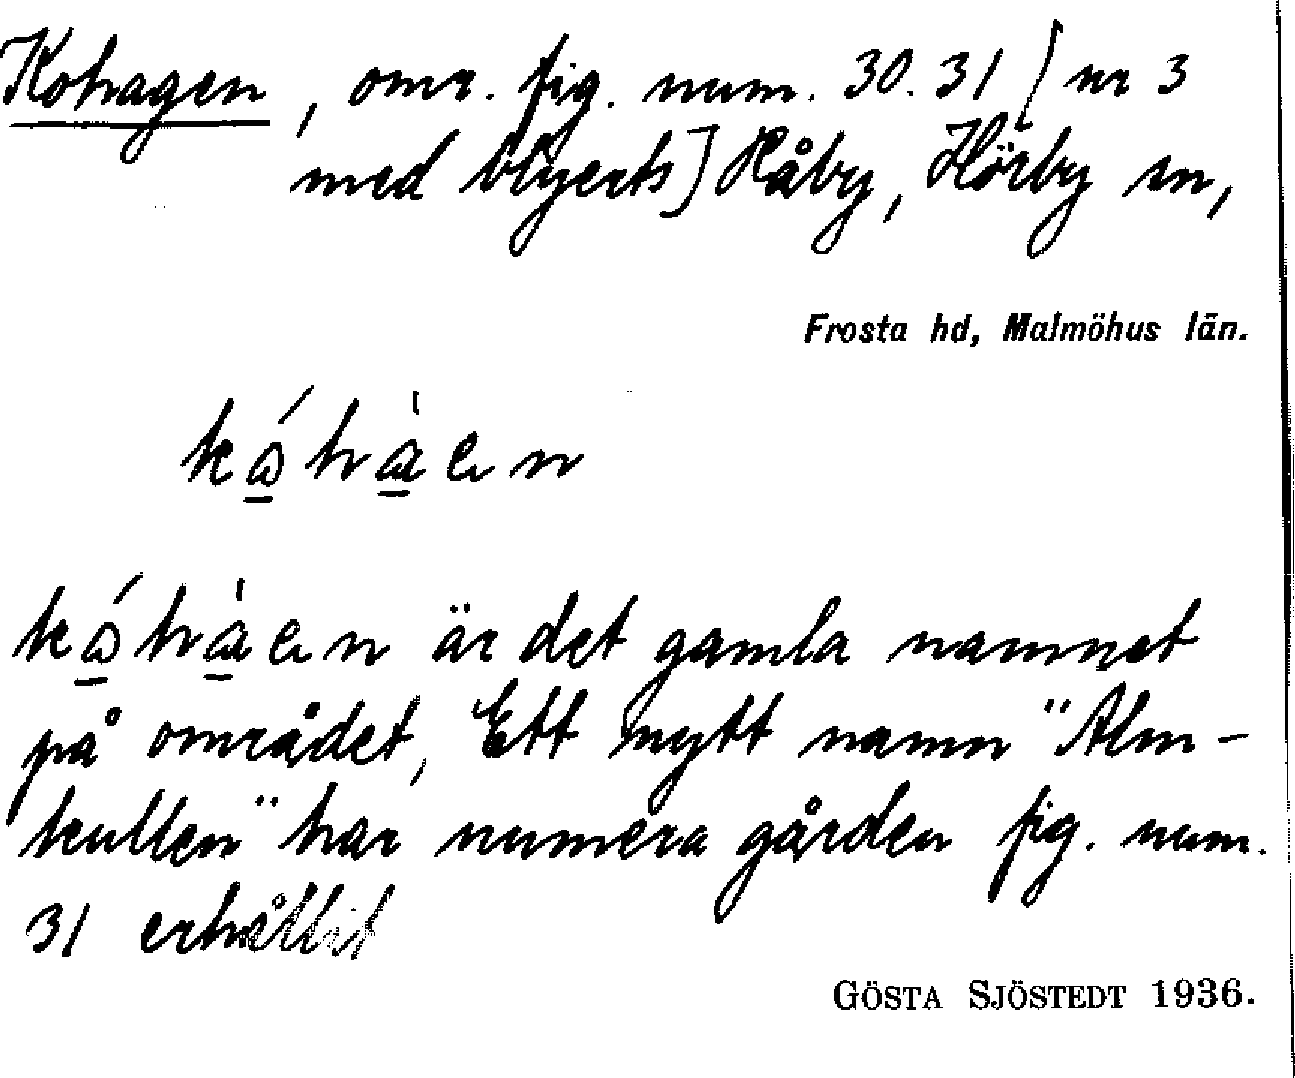 Kohagen, omr. fig. num. 30. 31 [nr 3
med blyerts] Råby, Hörby sn,
Frosta hd, Malmöhus län.
är det gamla namnet
på området, Ett nytt namn "Alm-
kullen" har numera gården fig. num.
31 erhållit
GÖSTA SJÖSTEDT 1936.